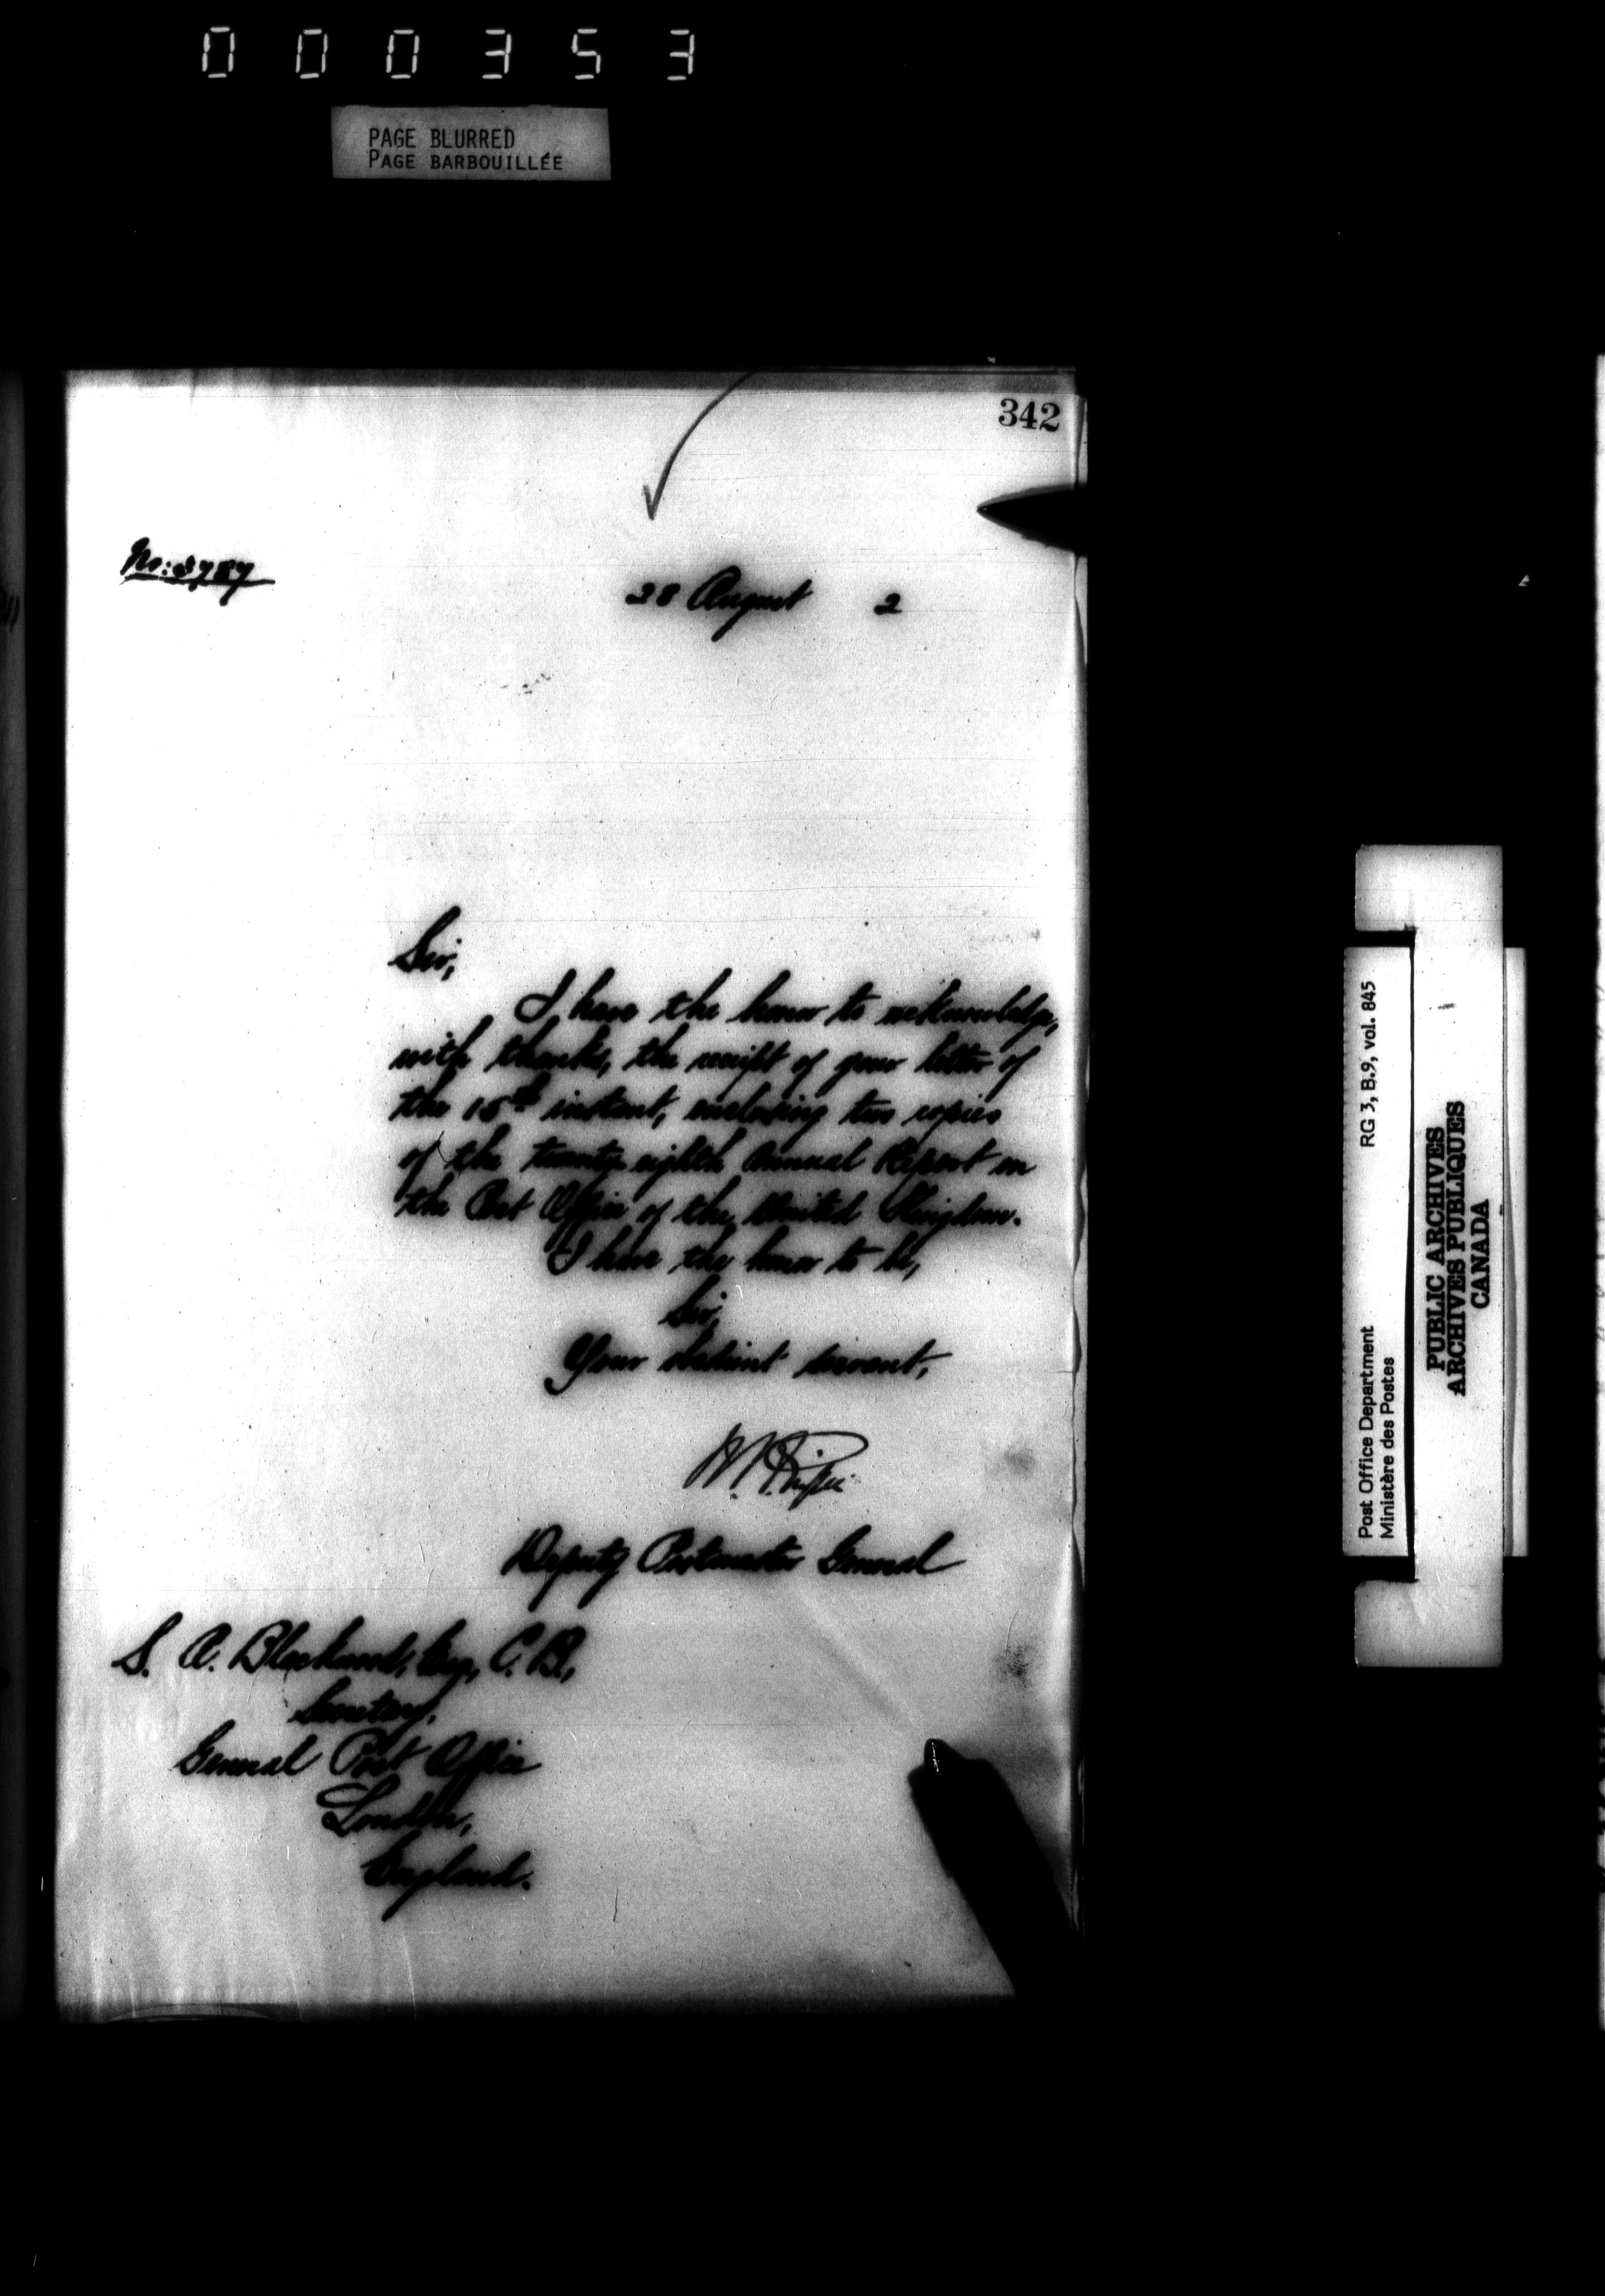 000353
PAGE BLURRED
PAGE BARBOUILLÉE
342
No: 8787
28 August 2
Sir,
I have the honor to acknowledge,
with thanks, the receipt of your letter of
the 15th instant, enclosing two copies
of the twenty-eighth Annual Report on
the Post Office of the United Kingdom.
I have the honor to be,
Sir,
Your obedient servant,
Deputy Postmaster General
S. A. Blackwood, Esq., C. B.,
Secretary,
General Post Office
London,
England.
RG 3, B.9, vol. 845
Post Office Department
Ministère des Postes
PUBLIC ARCHIVES
ARCHIVES PUBLIQUES
CANADA